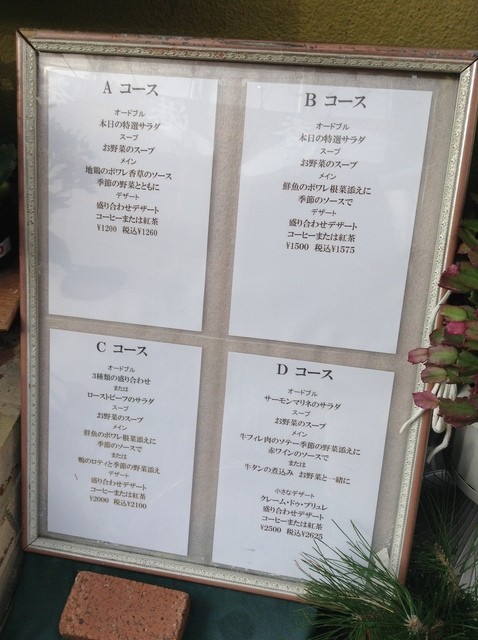 A コース
オードブル
本日の特選サラダ
スープ
お野菜のスープ
メイン
地鶏のポワレ香草のソース
季節の野菜とともに
デザート
盛り合わせデザート
コーヒーまたは紅茶
¥1200 税込¥1260
B コース
オードブル
本日の特選サラダ
スープ
お野菜のスープ
メイン
鮮魚のポワレ根菜添えに
季節のソースで
デザート
盛り合わせデザート
コーヒーまたは紅茶
¥1500 税込¥1575
C コース
オードブル
3種類の盛り合わせ
または
ローストビーフのサラダ
スープ
お野菜のスープ
メイン
鮮魚のポワレ根菜添えに
季節のソースで
または
鴨のロティと季節の野菜添え
デザート
盛り合わせデザート
コーヒーまたは紅茶
¥2000 税込¥2100
D コース
オードブル
サーモンマリネのサラダ
スープ
お野菜のスープ
メイン
牛フィレ肉のソテー季節の野菜添えに
赤ワインのソースで
または
牛タンの煮込み お野菜と一緒に
小さなデザート
クレーム・ドゥ・ブリュレ
盛り合わせデザート
コーヒーまたは紅茶
¥2500 税込¥2625